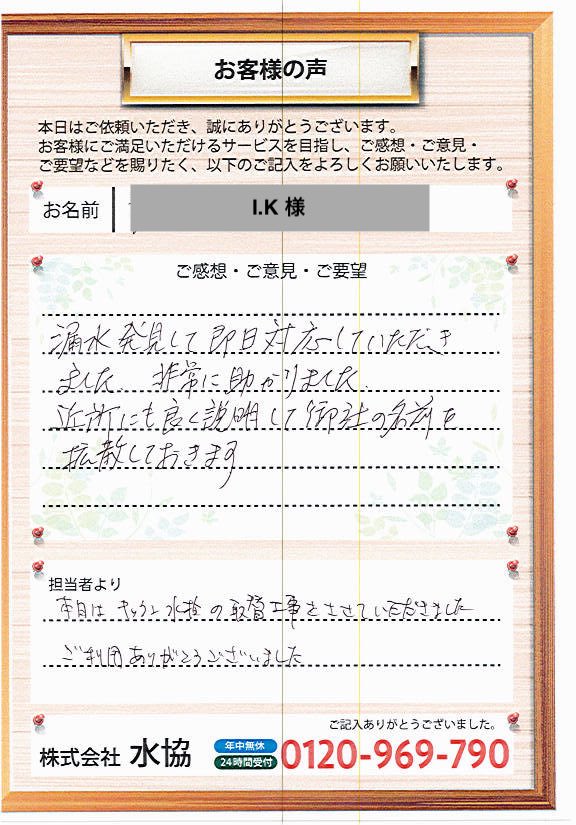 お客様の声
本日はご依頼いただき、誠にありがとうございます。
お客様にご満足いただけるサービスを目指し、ご感想・ご意見・
ご要望などを賜りたく、以下のご記入をよろしくお願いいたします。
お名前 I.K 様
ご感想・ご意見・ご要望
漏水発見して即日対応していただき
ました。非常に助かりました。
近所にも良く説明して御社の名前を
拡散しておきます
担当者より
本日はキッチン水栓の取替工事をさせていただきました
ご利用ありがとうございました
ご記入ありがとうございました。
株式会社 水協 年中無休 24時間受付 0120-969-790